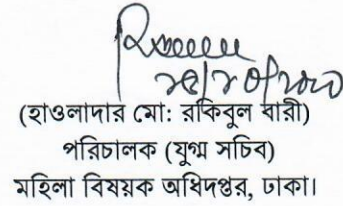 (হাওলাদার মো: রকিবুল বারী)
পরিচালক (যুগ্ম সচিব)
মহিলা বিষয়ক অধিদপ্তর, ঢাকা।